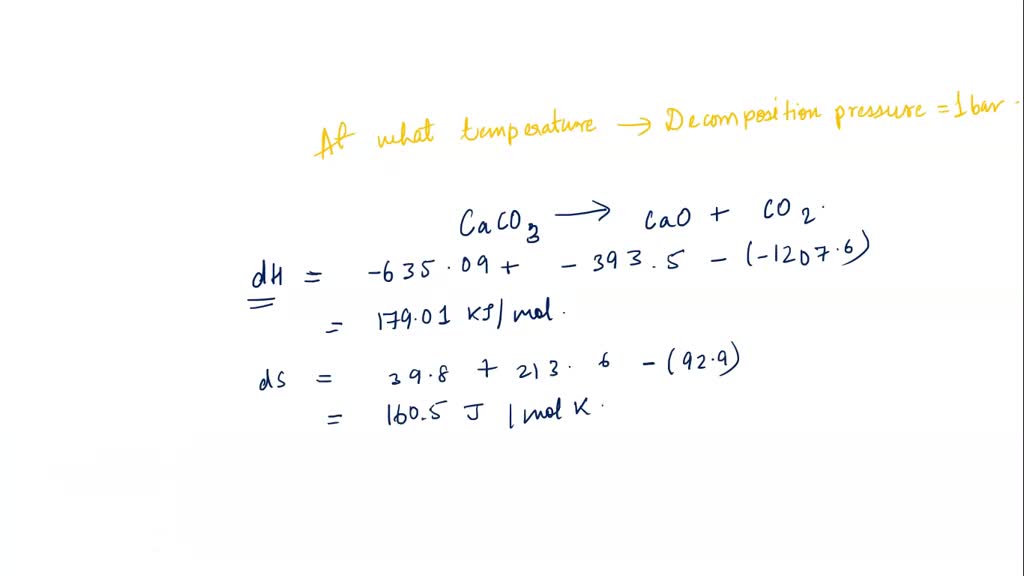 At what temperature → Decomposition pressure = 1 bar.
CaCO3 → CaO + CO2.
dH = -635.09 + - 393.5 - (-1207.6)
= 179.01 KJ/mol.
ds = 39.8 + 213.6 - (92.9)
= 160.5 J /mol K.